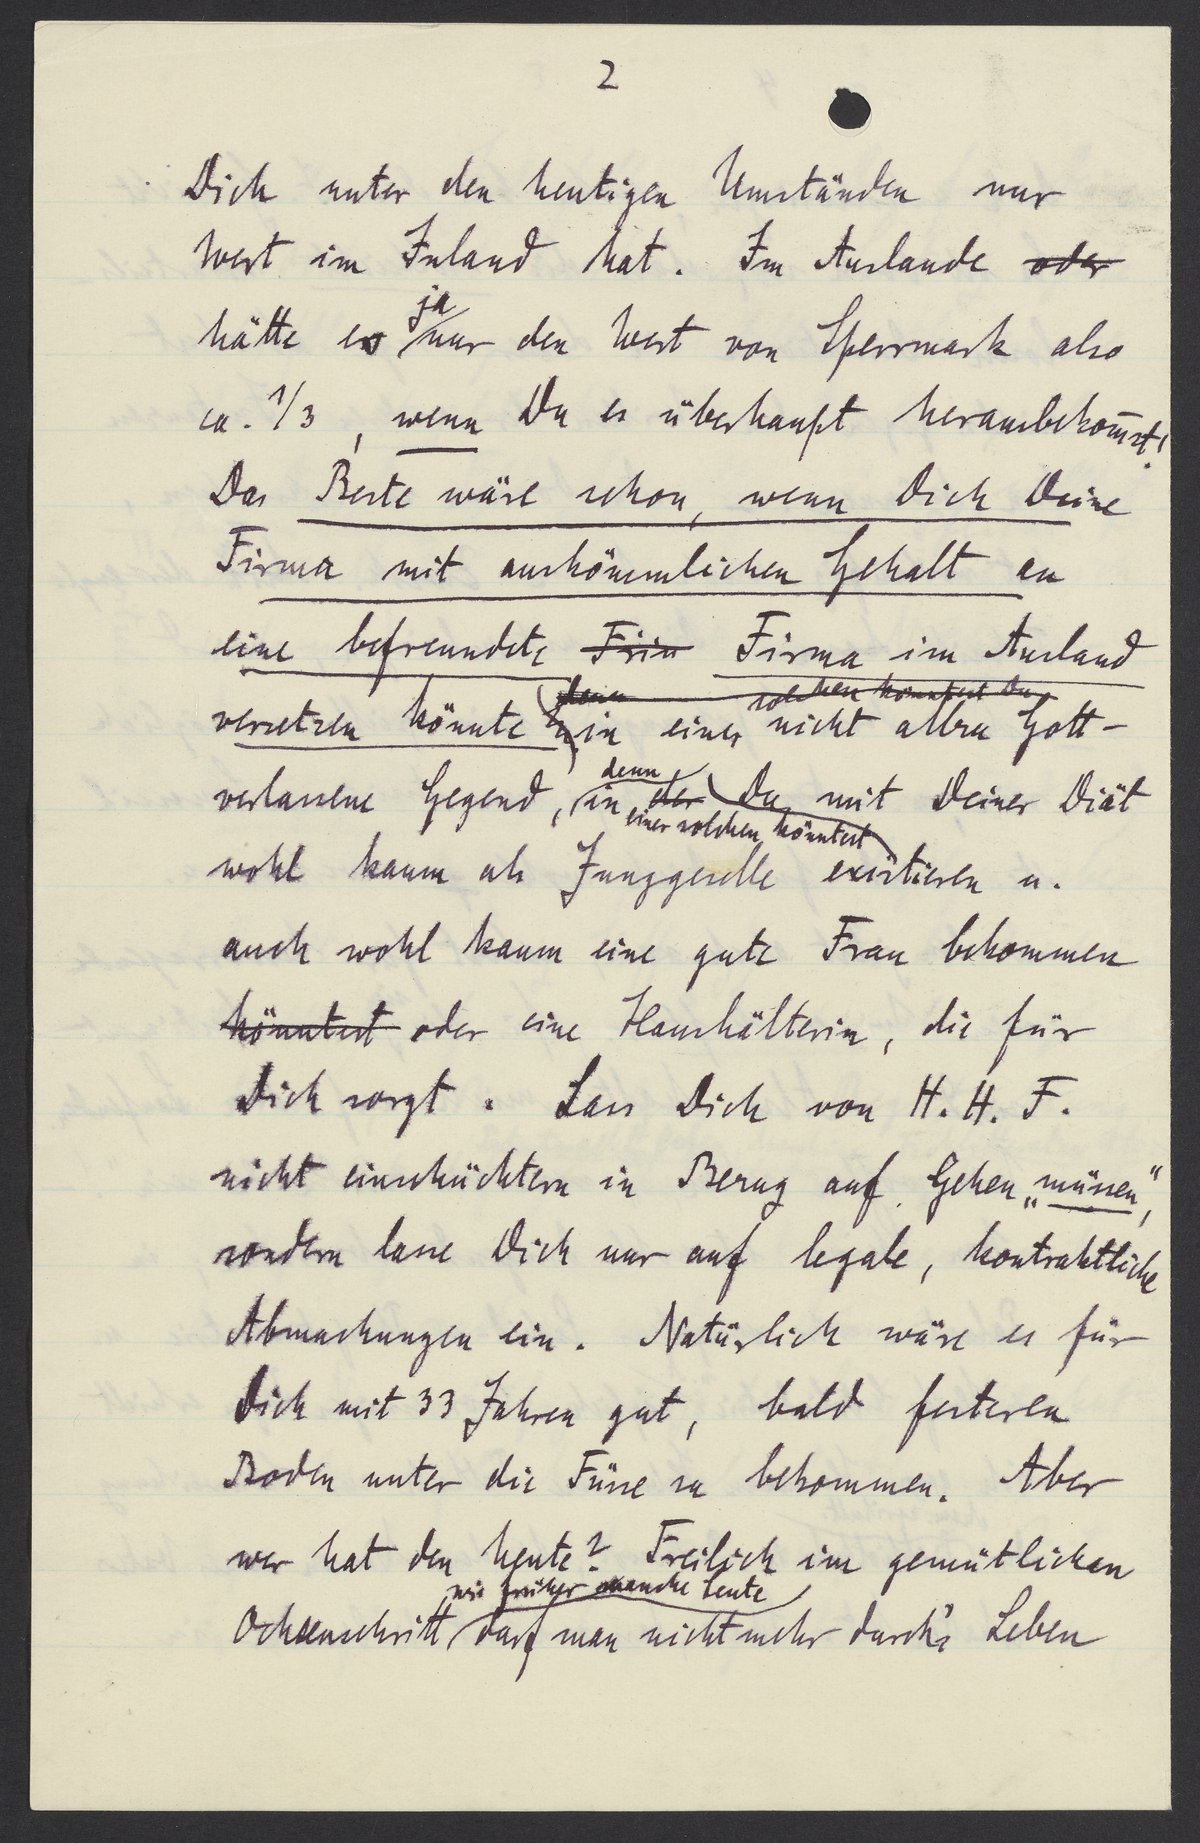 2
Dich unter den heutigen Umständen nur
Wert im Inland hat. Im Auslande oder
ja
hätte es nur den Wert von Sperrmark also
ca. 1/3, wenn Du es überhaupt herausbekom̅st!
Das Beste wäre schon, wenn Dich Deine
Firma mit auskömmlichen Gehalt an
eine befreundete Frin Firma im Ausland
denn solchen könntest Du
versetzen könnte in einer nicht allzu Gott-
denn
verlassene Gegend, in der Du mit Deiner Diät
einer solchen könntest
wohl kaum als Junggeselle existieren u.
auch wohl kaum eine gute Frau bekommen
könntest oder eine Haushälterin, die für
Dich sorgt. Lass Dich von H. H. F.
nicht einschüchtern in Bezug auf Gehen „müssen",
sondern lasse Dich nur auf legale, kontraktliche
Abmachungen ein. Natürlich wäre es für
Dich mit 33 Jahren gut, bald festeren
Boden unter die Füsse zu bekommen. Aber
wer hat den heute? Freilich im gemütlichen
wie früher manche Leute
Ochsenschritt darf man nicht mehr durch's Leben